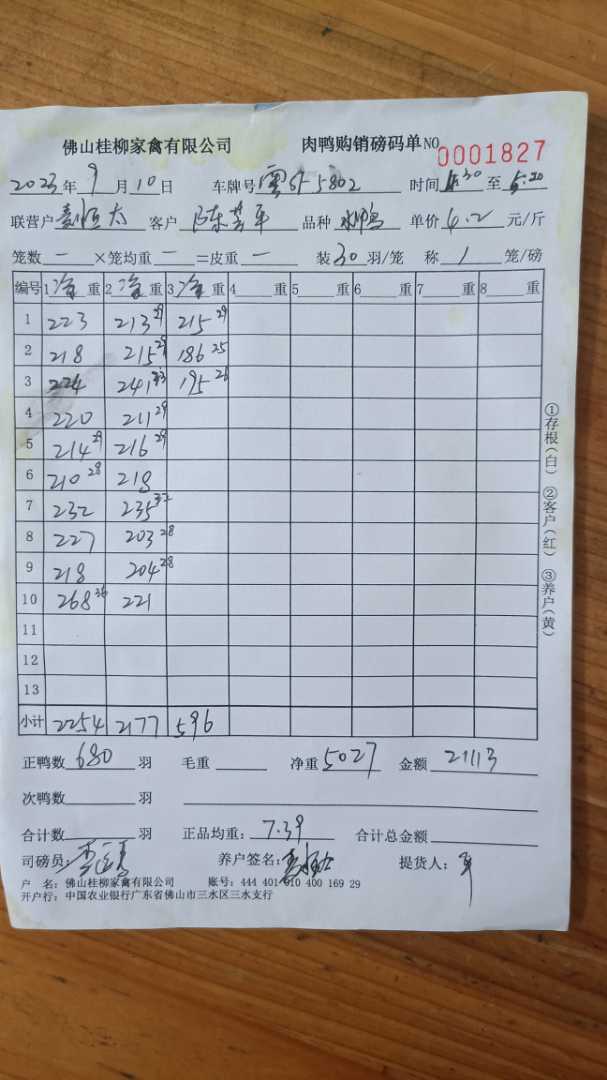 佛山桂柳家禽有限公司 肉鸭购销磅码单 NO 0001827
2023年9月10日 车牌号 5802 时间 至 5.20
联营户 恒太 客户 陈 平 品种 水鸭 单价 4.2 元/斤
笼数 一 ×笼均重 一 =皮重 一 装 30 羽/笼 称 1 笼/磅
编号 1 净 重 2 净 重 3 净 重 4 重 5 重 6 重 7 重 8 重
1 223 213 29 215 29
2 218 215 29 186 25
3 224 241 33 195 26
4 220 211 29
5 214 29 216 29
6 210 28 218
7 232 235 32
8 227 203 28
9 218 204 28
10 268 36 221
11
12
13
小计 2254 2177 596
正鸭数 680 羽 毛重 净重 5027 金额 21113
次鸭数 羽
合计数 羽 正品均重: 7.39 合计总金额
司磅员: 李 养户签名: 提货人: 平
户 名: 佛山桂柳家禽有限公司 账号: 444 401 010 400 169 29
开户行: 中国农业银行广东省佛山市三水区三水支行
①存根(白) ②客户(红) ③养户(黄)